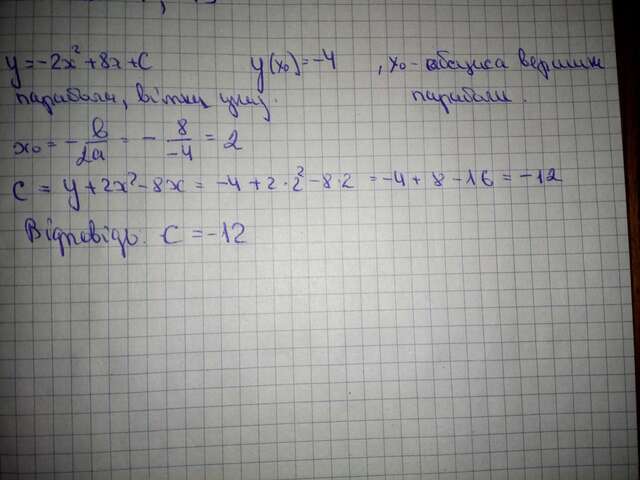 y = -2x² + 8x + C y(x₀) = -4 , x₀ - абсциса вершини
парабола, вітки униз. параболи.
x₀ = - b/2a = - 8/-4 = 2
C = y + 2x² - 8x = -4 + 2·2² - 8·2 = -4 + 8 - 16 = -12
Відповідь: C = -12